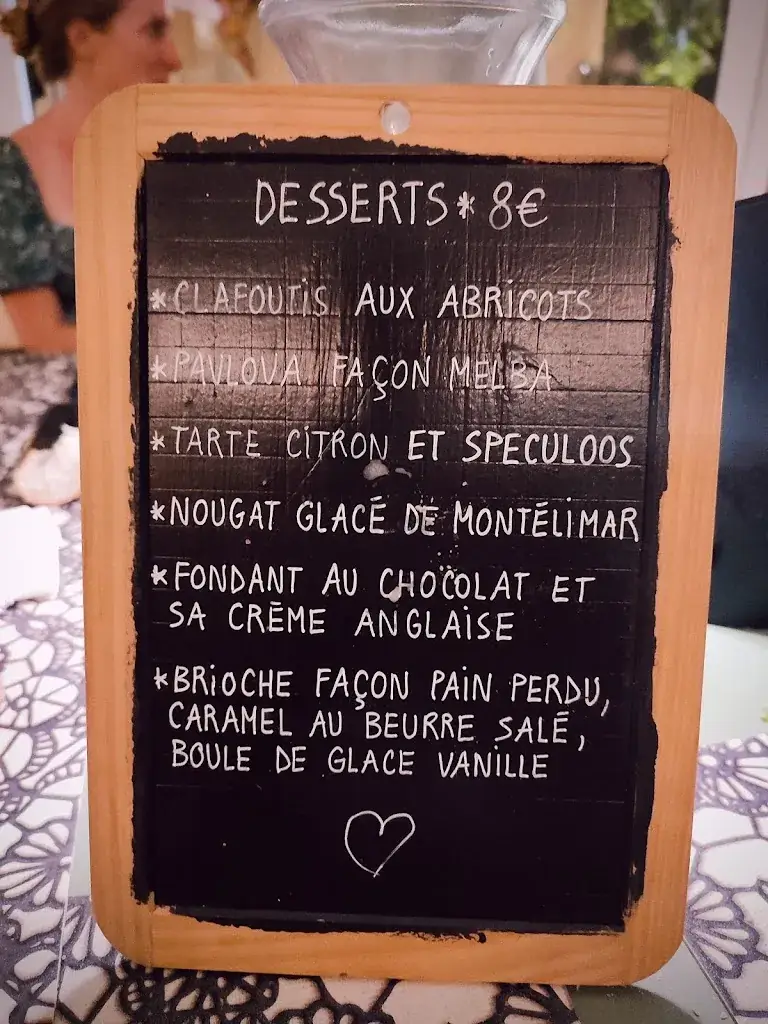 DESSERTS * 8€
*CLAFOUTIS AUX ABRICOTS
*PAVLOVA FAÇON MELBA
*TARTE CITRON ET SPECULOOS
*NOUGAT GLACÉ DE MONTÉLIMAR
*FONDANT AU CHOCOLAT ET
SA CRÈME ANGLAISE
*BRIOCHE FAÇON PAIN PERDU,
CARAMEL AU BEURRE SALÉ,
BOULE DE GLACE VANILLE